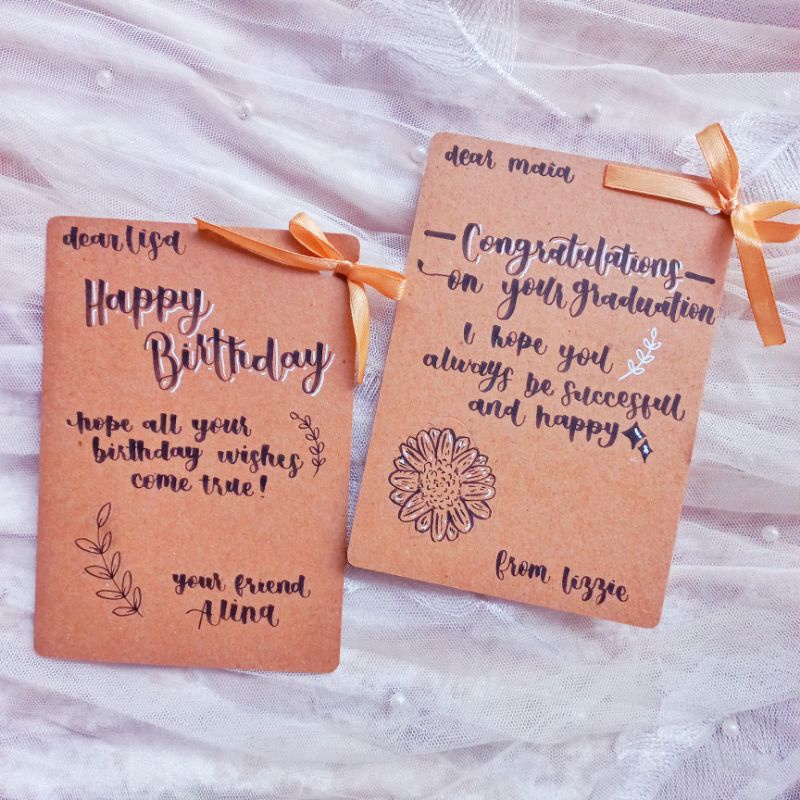 dear lisa
Happy
Birthday
hope all your
birthday wishes
come true!
your friend
Alina
dear maia
- Congratulations -
on your graduation
I hope you
always be succesfull
and happy
from lizzie